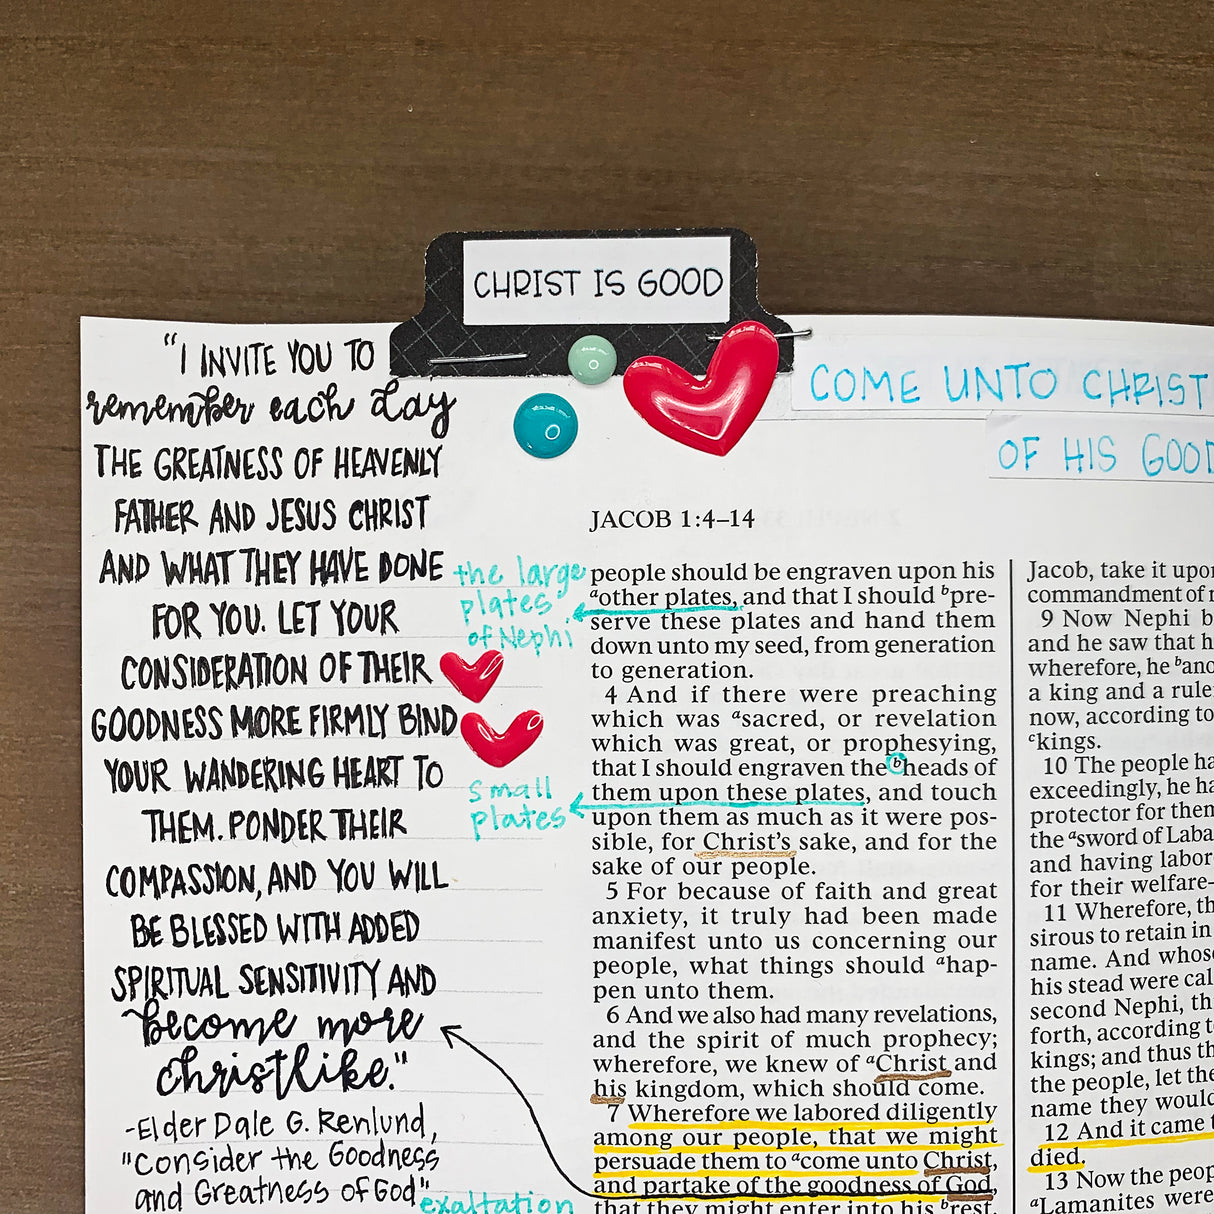 CHRIST IS GOOD
"I INVITE YOU TO
remember each day
THE GREATNESS OF HEAVENLY
FATHER AND JESUS CHRIST
AND WHAT THEY HAVE DONE
FOR YOU. LET YOUR
CONSIDERATION OF THEIR
GOODNESS MORE FIRMLY BIND
YOUR WANDERING HEART TO
THEM. PONDER THEIR
COMPASSION, AND YOU WILL
BE BLESSED WITH ADDED
SPIRITUAL SENSITIVITY AND
become more
christlike."
-Elder Dale G. Renlund,
"Consider the Goodness
and Greatness of God"
COME UNTO CHRIST
OF HIS GOOD
the large
plates
of Nephi
small
plates
exaltation
JACOB 1:4–14
people should be engraven upon his
aother plates, and that I should bpre-
serve these plates and hand them
down unto my seed, from generation
to generation.
4 And if there were preaching
which was asacred, or revelation
which was great, or prophesying,
that I should engraven the bheads of
them upon these plates, and touch
upon them as much as it were pos-
sible, for Christ's sake, and for the
sake of our people.
5 For because of faith and great
anxiety, it truly had been made
manifest unto us concerning our
people, what things should ahap-
pen unto them.
6 And we also had many revelations,
and the spirit of much prophecy;
wherefore, we knew of aChrist and
his kingdom, which should come.
7 Wherefore we labored diligently
among our people, that we might
persuade them to acome unto Christ,
and partake of the goodness of God,
that they might enter into his brest,
Jacob, take it upo
commandment of
9 Now Nephi b
and he saw that h
wherefore, he bano
a king and a rule
now, according to
ckings.
10 The people ha
exceedingly, he ha
protector for them
the asword of Laba
and having labor
for their welfare—
11 Wherefore, th
sirous to retain in
name. And whos
his stead were cal
second Nephi, th
forth, according t
kings; and thus th
the people, let the
name they would
12 And it came t
died.
13 Now the peop
aLamanites were